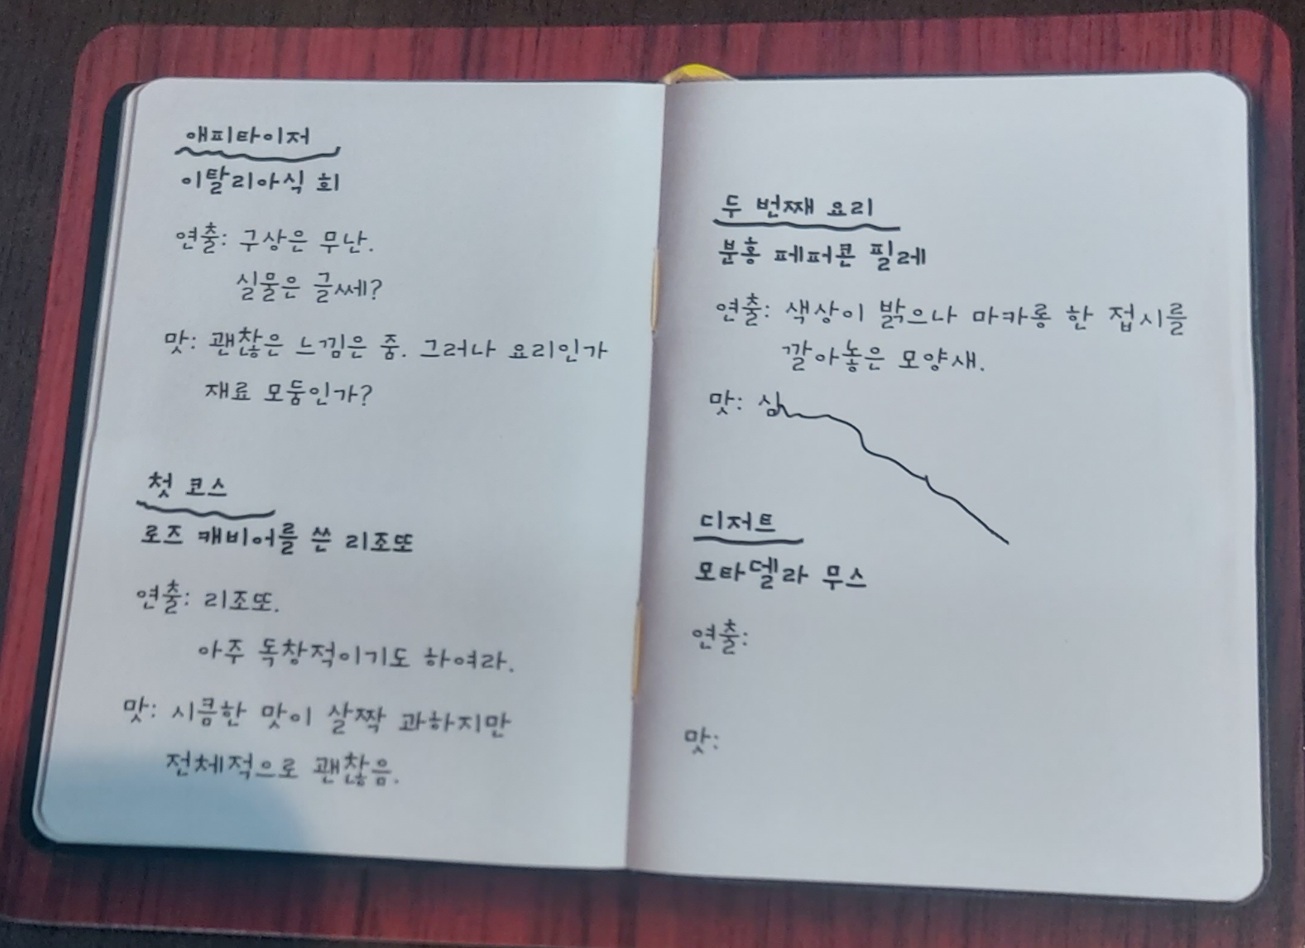 애피타이저
이탈리아식 회
연출: 구상은 무난.
실물은 글쎄?
맛: 괜찮은 느낌은 줌. 그러나 요리인가
재료 모둠인가?
첫 코스
로즈 캐비어를 쓴 리조또
연출: 리조또.
아주 독창적이기도 하여라.
맛: 시큼한 맛이 살짝 과하지만
전체적으로 괜찮음.
두 번째 요리
분홍 페퍼콘 필레
연출: 색상이 밝으나 마카롱 한 접시를
깔아놓은 모양새.
맛: 심
디저트
모타델라 무스
연출:
맛: